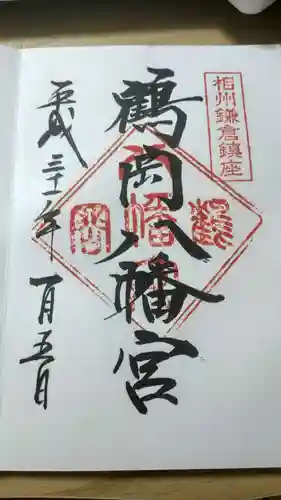 相州鎌倉鎮座
鶴岡八幡宮
平成三十一年一月五日